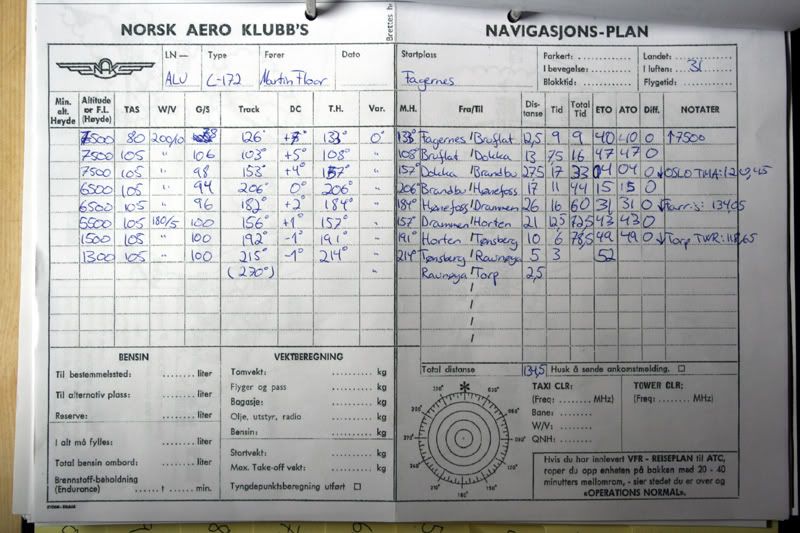 Brettes h
NORSK AERO KLUBB'S NAVIGASJONS-PLAN
LN— Type Fører Dato Startplass Parkert: Landet:
ALU C-172 Martin Floor Fagernes I bevegelse: I luften: 31
Blokktid: Flygetid:
Min. alt. Høyde Altitude or F.L. (Høyde) TAS W/V G/S Track DC T.H. Var. M.H. Fra/Til Distanse Tid Total Tid ETO ATO Diff. NOTATER
7500 80 200/10 126° 133° 0° 133° Fagernes / Bruflat 12,5 9 9 40 40 0 ↑7500
7500 105 " 106 103° +5° 108° " 108° Bruflat / Dokka 13 7,5 16 47 47 0
7500 105 " 98 153° +4° 157° " 157° Dokka / Brandbu 27,5 17 33 04 04 0 ↓OSLO TMA: 120,45
6500 105 " 94 206° 0° 206° " 206° Brandbu / Hønefoss 17 11 44 15 15 0
6500 105 " 96 182° +2° 184° " 184° Hønefoss / Drammen 26 16 60 31 31 0 ↓Farris: 134,05
5500 105 180/5 100 156° +1° 157° " 157° Drammen / Horten 21 12,5 72,5 43 43 0
1500 105 " 100 192° -1° 191° " 191° Horten / Tønsberg 10 6 78,5 49 49 0 ↓Torp TWR: 118,65
1300 105 " 100 215° -1° 214° " 214° Tønsberg / Ravnøya 5 3 52
(270°) " Ravnøya / Torp 2,5
BENSIN
Til bestemmelssted: ........ liter
Til alternativ plass: ........ liter
Reserve: ........ liter
I alt må fylles: ........ liter
Total bensin ombord: ........ liter
Brennstoff-beholdning (Endurance) ...... t ...... min.
VEKTBEREGNING
Tomvekt: ......... kg
Flyger og pass ......... kg
Bagasje: ......... kg
Olje, utstyr, radio ......... kg
Bensin: ......... kg
Startvekt: ......... kg
Max. Take-off vekt: ......... kg
Tyngdepunktsberegning utført
Total distanse 134,5 Husk å sende ankomstmelding.
TAXI CLR:
(Freq: ........ MHz)
Bane: ........
W/V: ........
QNH: ........
TOWER CLR:
(Freq: ........ MHz)
Hvis du har innlevert VFR - REISEPLAN til ATC,
roper du opp enheten på bakken med 20 - 40
minutters mellomrom, - sier stedet du er over og
«OPERATIONS NORMAL».